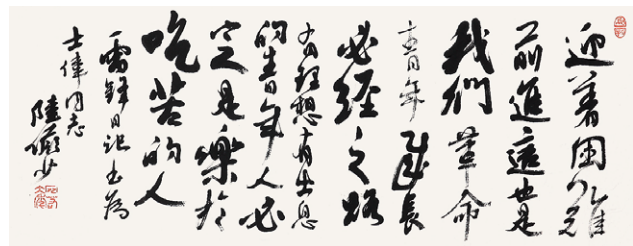 迎着困難
前進這也是
我們革命
青年成長
必經之路
有理想有出息
的青年人必
定是樂於
吃苦的人
雷鋒日記書為
士偉同志
陸儼少